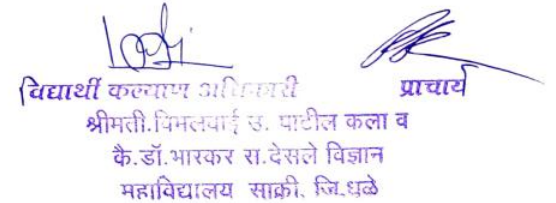 विद्यार्थी कल्याण अधिकारी प्राचार्य
श्रीमती.विमलबाई उ. पाटील कला व
कै.डॉ.भास्कर स.देसले विज्ञान
महाविद्यालय साक्री. जि.धुळे